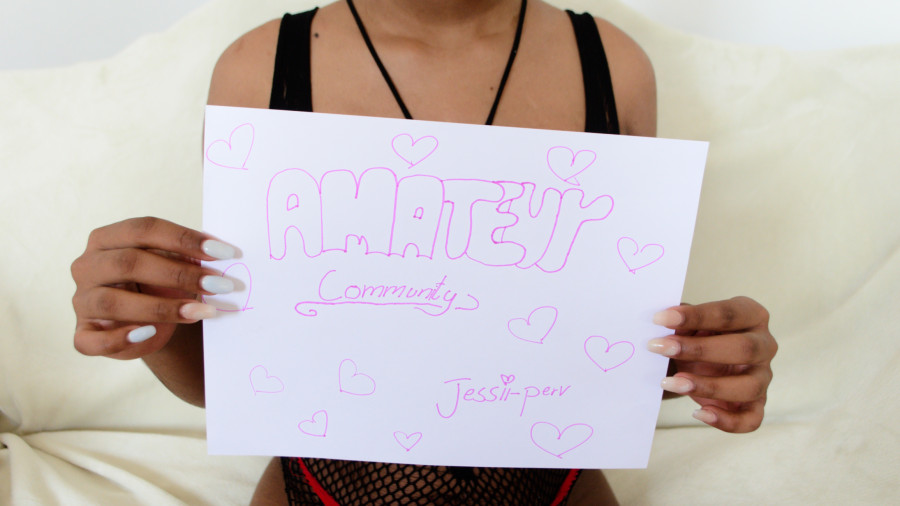 AMATEUR
Community
Jessii-perv